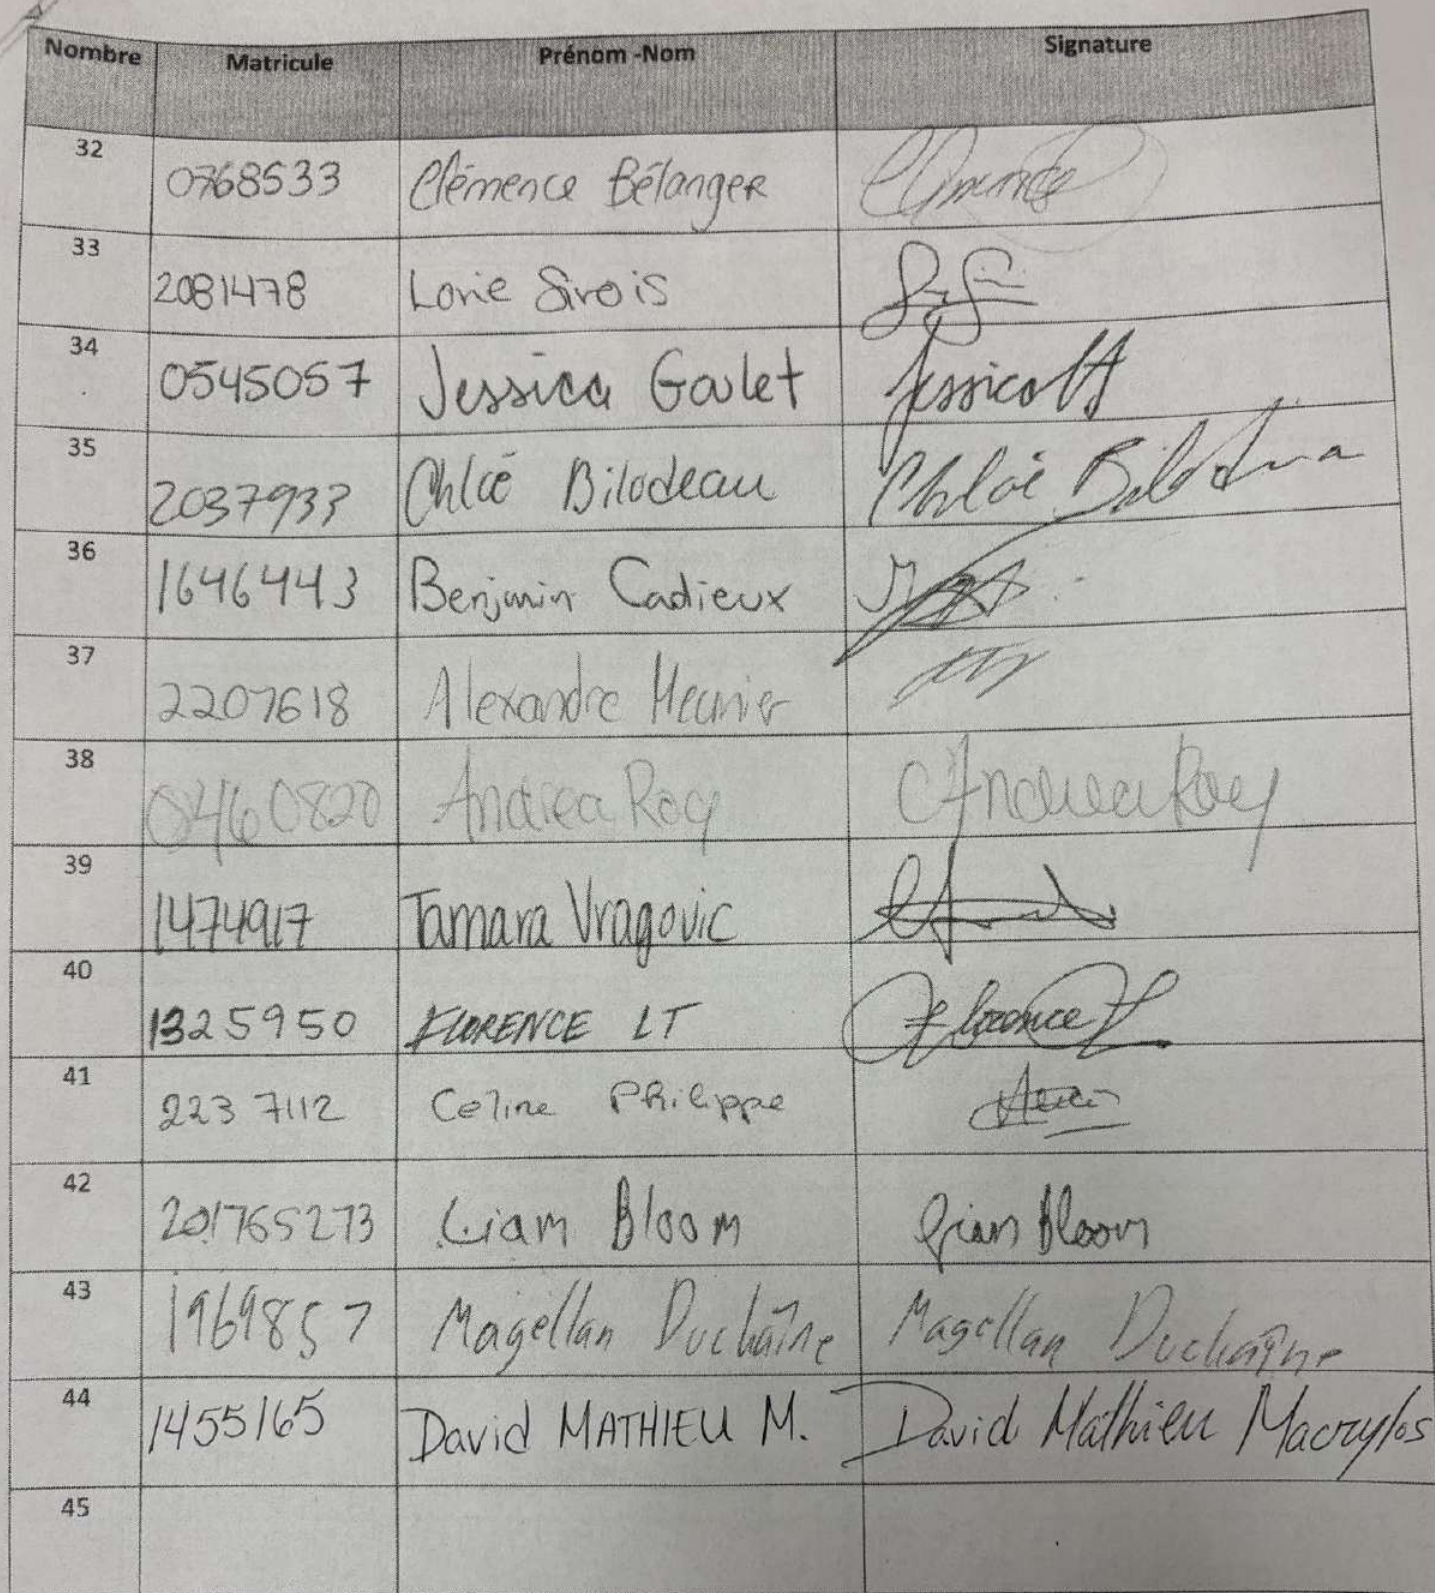 Nombre Matricule Prénom -Nom Signature
32 0768533 Clémence Bélanger
33 2081478 Lorie Sirois
34 0545057 Jessica Goulet
35 2037933 Chloé Bilodeau Chloé Bilodeau
36 1646443 Benjmin Cadieux
37 2207618 Alexandre Meunier
38 0460820 Andrea Roy Andrea Roy
39 1474917 Tamara Vragovic
40 1325950 FLORENCE LT Florence
41 2237112 Celine Philippe
42 201765273 Liam Bloom Liam Bloom
43 1969857 Magellan Duchaîne Magellan Duchaîne
44 1455165 David MATHIEU M. David Mathieu
45